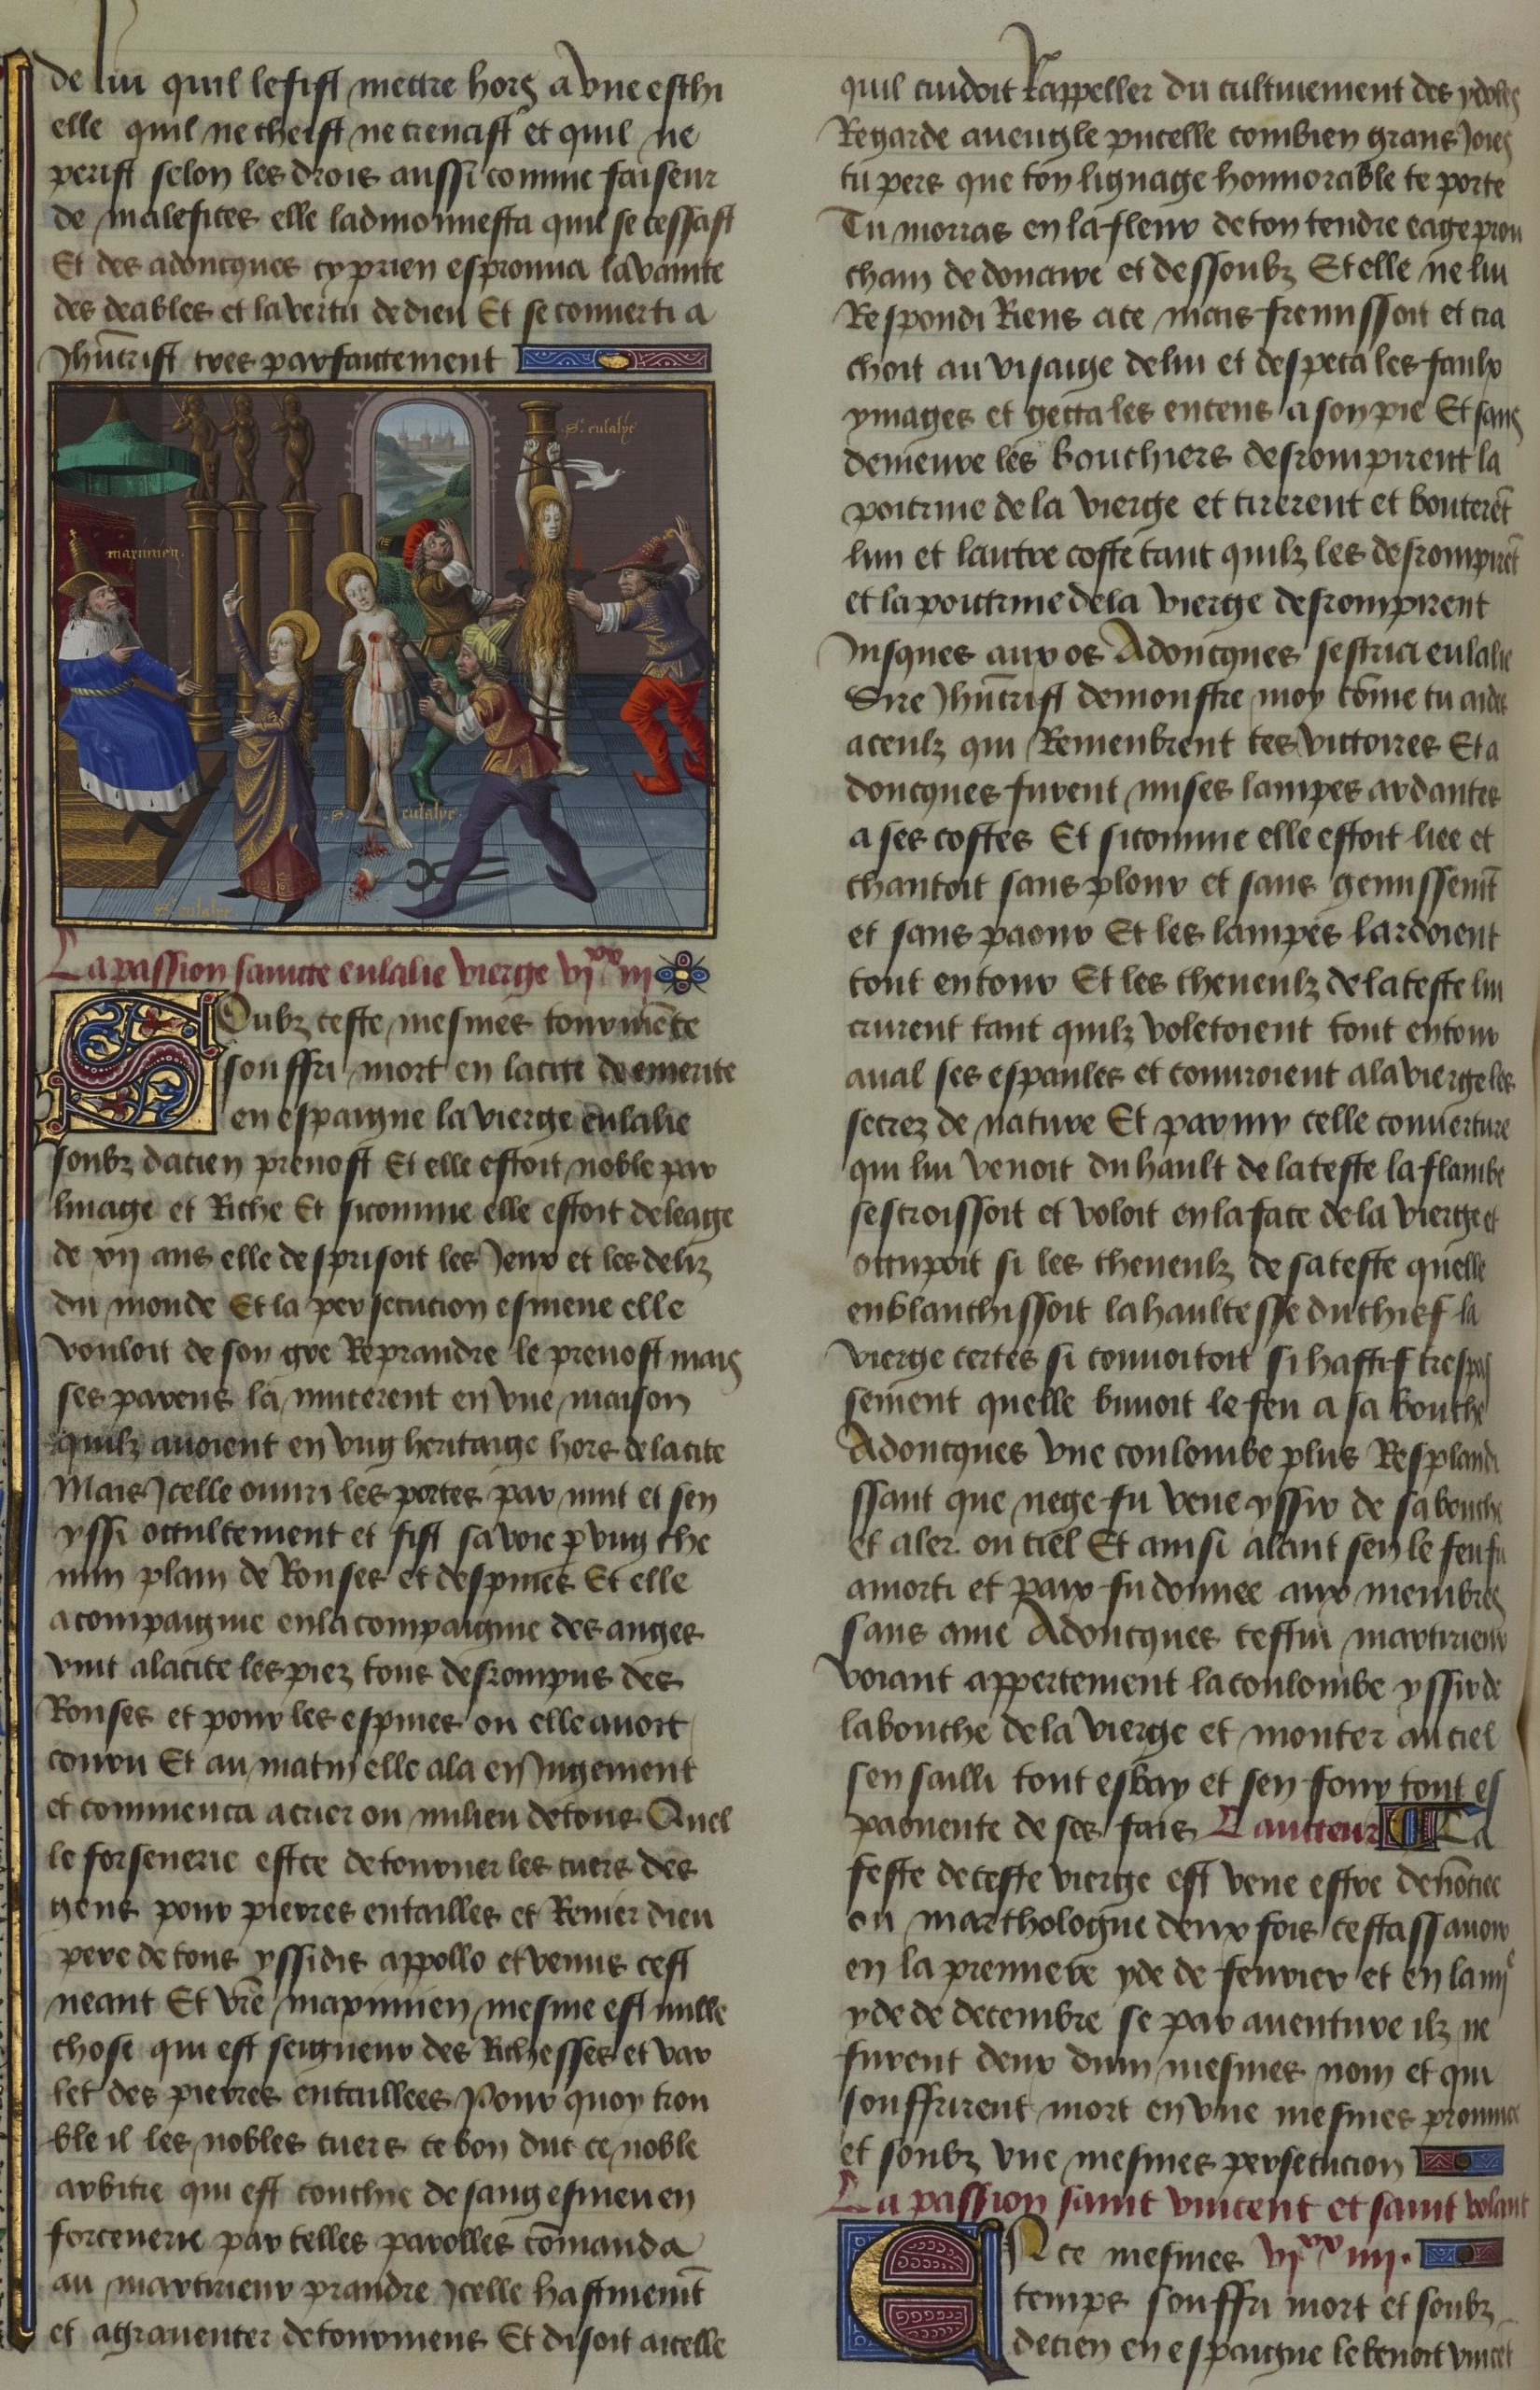 de lui quil le fist mettre hors a vne eschi
elle quil ne cheist ne tencast et quil ne
perist selon les drois aussi comme faiseur
de malefices elle ladmonnesta quil se cessast
Et des adoncques cyprien esprouua la vanite
des deables et la vertu de dieu Et se conuerti a
Jhūcrist tres parfaictement
maximien
s.te eulalye
s.te eulalye
s.te eulalye
La passion saincte eulalie vierge vjxx iij
Soubz ceste mesmes tourmēte
souffri mort en la cite de emerite
en espaigne la vierge eulalie
soubz dacien preuost Et elle estoit noble par
linage et Riche Et sicomme elle estoit de leage
de xij ans elle desprisoit les Jeux et les deliz
du monde Et la persecucion esmeue elle
vouloit de son gre Reprandre le preuost mais
ses parens la mucerent en vne maison
quilz auoient en vng heritaige hors de la cite
Mais Jcelle ouuri les portes par nuit et sen
yssi occultement et fist sa voie p vng che
min plain de Ronses et despines Et elle
acompaignie en la compaignie des anges
vint a la cite les piez tous desrompus des
Ronses et pour les espines ou elle auoit
couru Et au matin elle ala en Jugement
et commenca a crier ou milieu de tous Quel
le forsenerie est ce de tourner les cuers des
gens pour pierres entailles et Renier dieu
pere de tous yssidis appollo et venus cest
neant Et vrē maximien mesme est nulle
chose qui est seigneur des Richesses et var
let des pierres entaillees Pour quoy trou
ble il les nobles cuers ce bon duc ce noble
arbitre qui est couchie de sang esmeu en
forcenerie par telles parolles cōmanda
au martirieur prandre Jcelle hastiuemēt
et agrauenter de tourmens Et disoit a icelle
quil cuidoit Rappeller du cultiuement des ydoles
Regarde aueugle pucelle combien grans Joies
tu pers que ton lignage honnorable te porte
Tu morras en la fleur de ton tendre eage prou
chain de douaire et dessoubz Et elle ne lui
Respondi Riens a ce mais fremissoit et cra
choit au visaige de lui et despeca les faulx
ymages et getta les encens a son pie Et sans
demeure les bouchiers desrompirent la
poitrine de la vierge et tirerent et bouterēt
lun et lautre coste tant quilz les desrompirēt
et la poitrine de la vierge desrompirent
Jusques aux os Adoncques sescria eulalie
Sire Jhūcrist demonstre moy cōme tu aides
a ceulz qui Remenbrent tes victoires Et a
doncques furent mises lampes ardantes
a ses costes Et sicomme elle estoit liee et
chantoit sans plour et sans gemissemēt
et sans paour Et les lampes lardoient
tout entour Et les cheueulz de la teste lui
crurent tant quilz voletoient tout entour
aual ses espaules et couuroient a la vierge les
secrez de nature Et parmy celle couuerture
qui lui venoit du hault de la teste la flambe
sestroissoit et voloit en la face de la vierge et
occupoit si les cheueulz de sa teste quelle
enblanchissoit la haultesse du chief la
vierge certes si couuoitoit si hastif trespas
sement quelle buuoit le feu a sa bouche
Adoncques vne coulombe plus Resplandi
ssant que nege fu veue yssir de sa bouche
et aler ou ciel Et ainsi alant sen le feu fu
amorti et paix fu donnee aux membres
sans ame Adoncques cestui martirieur
voiant appertement la coulombe yssir de
la bouche de la vierge et monter au ciel
sen sailli tout esbay et sen fouy tout es
pauente de ses fais Laucteur La
feste de ceste vierge est veue estre denōciee
ou marthologue deux fois cestassauoir
en la premiere yde de feurier et en la iiije
yde de decembre se par auenture ilz ne
furent deux dun mesmes nom et qui
souffrirent mort en vne mesmes prouince
et soubz vne mesmes persecucion
La passion saint vincent et saint volant
En ce mesmes vjxx iiij.
temps souffri mort et soubz
decien en espaigne le benoit vincēt